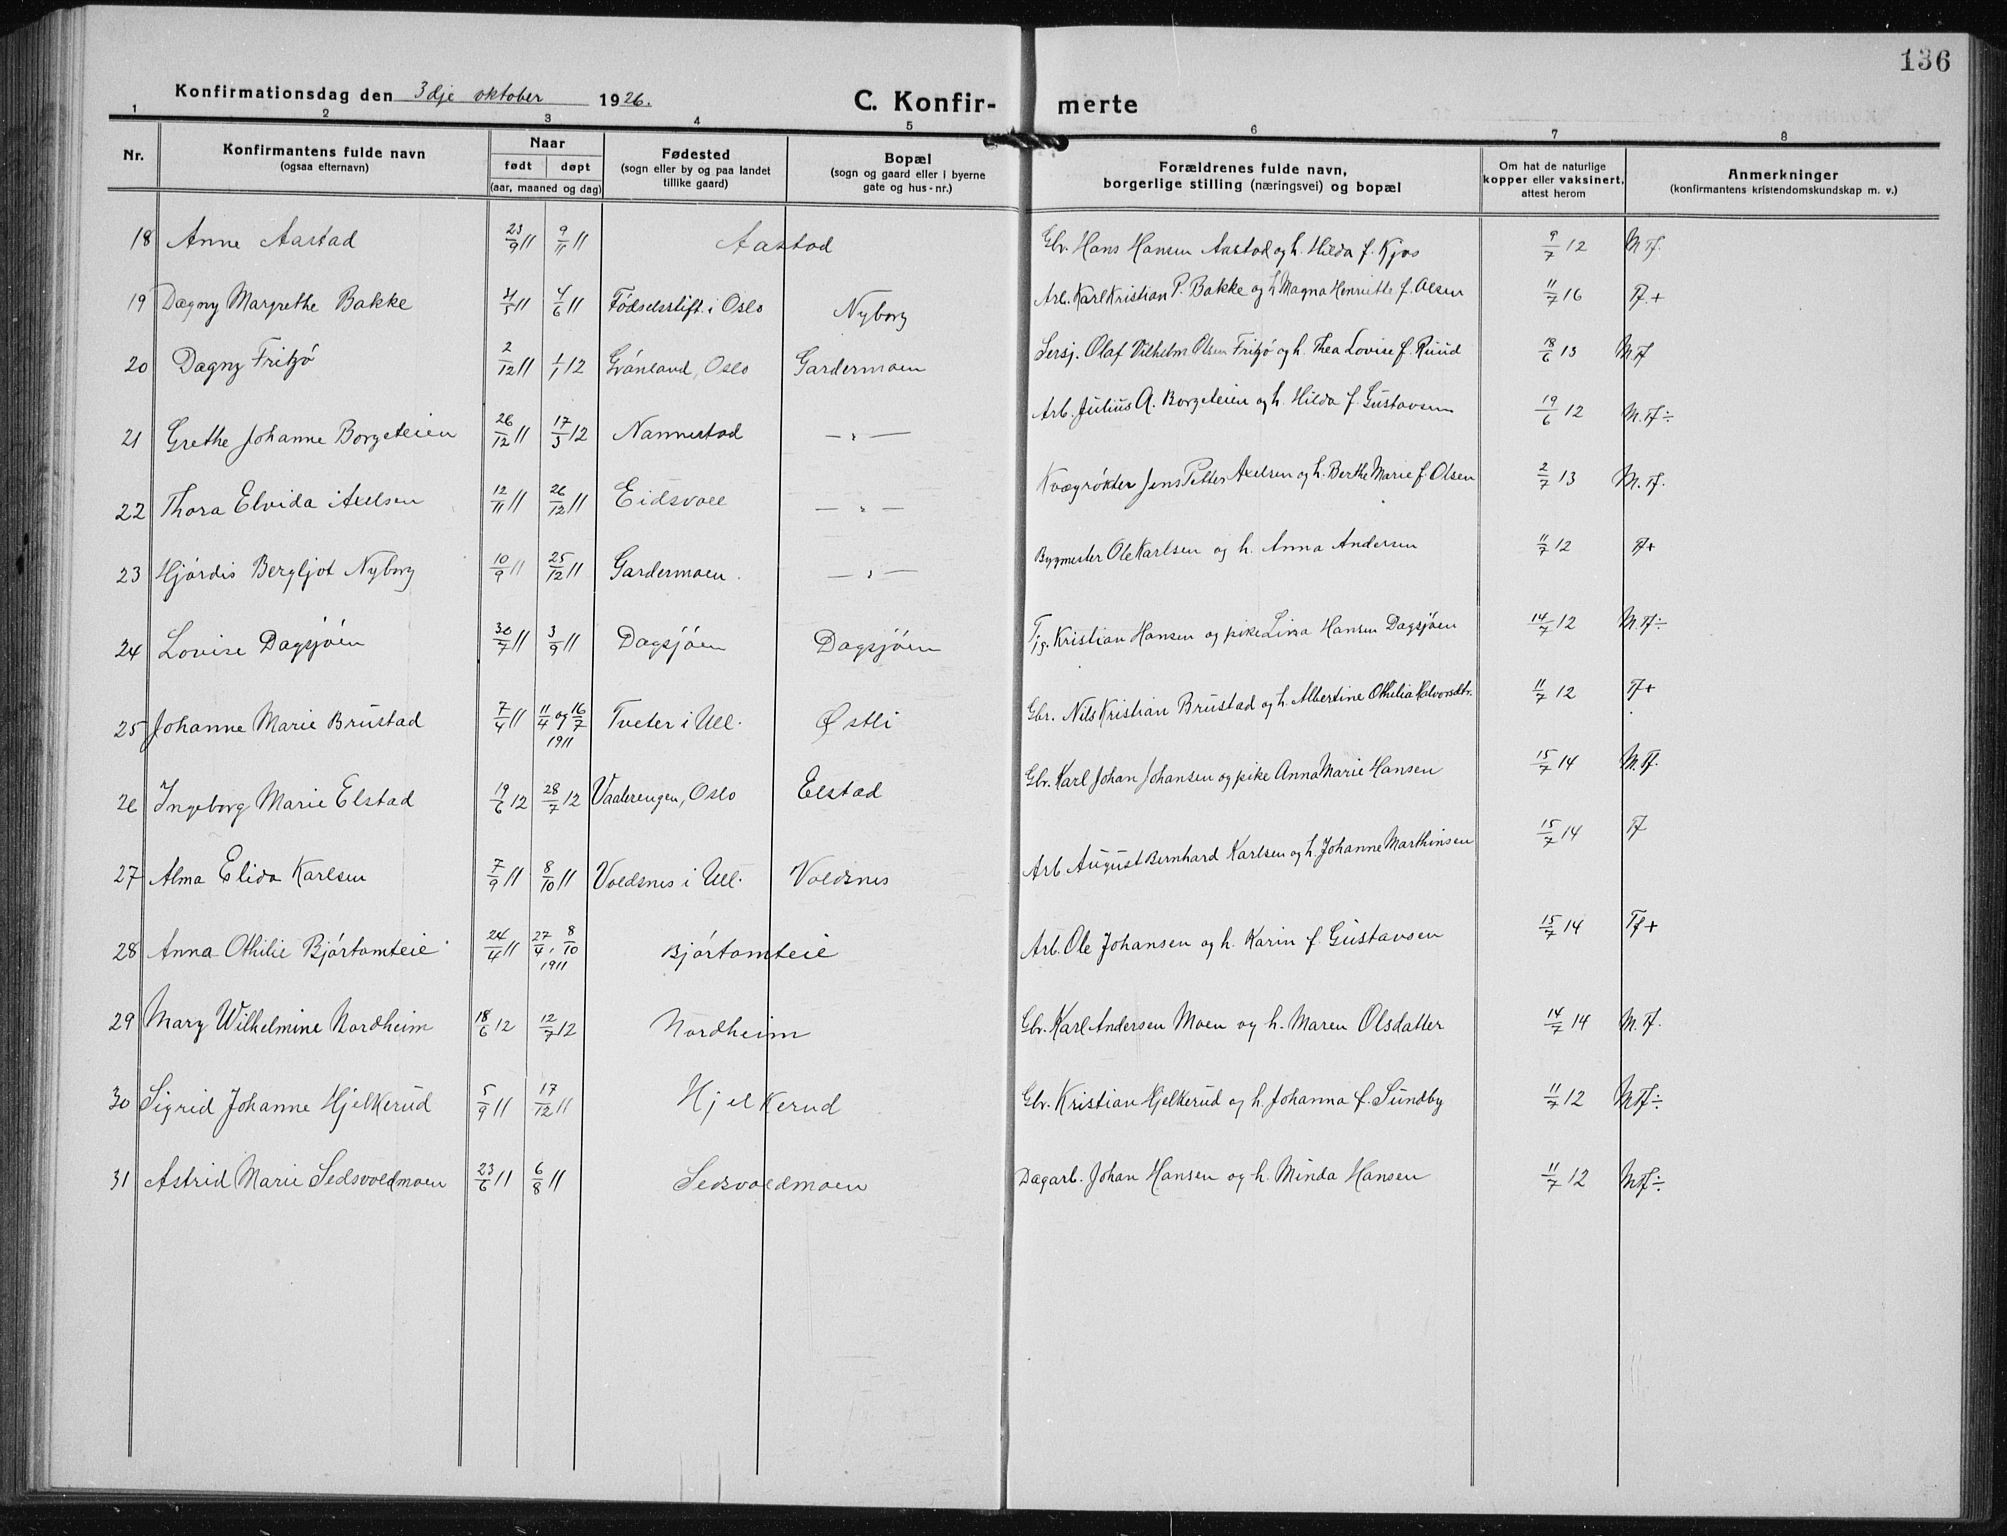 136
Konfirmationsdag den 3dje oktober 1926.
C. Konfir- merte
1 2 3 4 5 6 7 8
Nr. Konfirmantens fulde navn (ogsaa efternavn) Naar født døpt (aar, maaned og dag) Fødested (sogn eller by og paa landet tillike gaard) Bopæl (sogn og gaard eller i byerne gate og hus-nr.) Forældrenes fulde navn, borgerlige stilling (næringsvei) og bopæl Om hat de naturlige kopper eller vaksinert, attest herom Anmerkninger (konfirmantens kristendomskundskap m. v.)
18 Anne Aastad 23/9 11 9/11 11 Aastad Gbr. Hans Hansen Aastad og h. Hilda f. Kjos 9/7 12 M.Tf.
19 Dagny Margrethe Bakke 4/6 11 Fødselsstift. i Oslo Nyborg Arb. Karl Kristian P. Bakke og h. Magna Henriette f. Olsen 11/7 16 Tf +
20 Dagny Fritzö 2/12 11 1/1 12 Grönland, Oslo Gardermoen Sersj. Olaf Vilhelm Olsen Fritzö og h. Thea Lovise f. Ruud 18/6 13 M Tf
21 Grethe Johanne Borgeteien 26/12 11 17/3 12 Nannestad — „ — Arb. Julius A. Borgeteien og h. Hilda f. Gustavsen 19/6 12 M.Tf ÷
22 Thora Elvida Axelsen 12/11 11 26/12 11 Eidsvoll — „ — Kvægrökter Jens Petter Axelsen og h. Berthe Marie f. Olsen 2/7 13 M.Tf.
23 Hjördis Bergljot Nyborg 10/9 11 25/12 11 Gardermoen. — „ — Bygmester Ole Karlsen og h. Anna Andersen 11/7 12 Tf +
24 Lovise Dagsjöen 30/7 11 3/9 11 Dagsjöen Dagsjöen Tjg. Kristian Hansen og pike Lina Hansen Dagsjöen 14/7 12 M.Tf ÷
25 Johanne Marie Brustad 7/4 11 11/4 og 16/7 1911 Tveter i Ull. Østli Gbr. Nils Kristian Brustad og h. Albertine Othilia Halvorsdtr. 11/7 12 Tf +
26 Ingeborg Marie Elstad 19/6 12 28/7 12 Vaalerengen, Oslo Elstad Gbr. Karl Johan Johansen og pike Anna Marie Hansen 15/7 14 M.Tf.
27 Alma Elida Karlsen 7/9 11 8/10 11 Voldsnes i Ull. Voldsnes Arb. August Bernhard Karlsen og h. Johanne Marthinsen 15/7 14 Tf
28 Anna Othilie Björtomteie 24/4 11 27/4, 8/10 1911 Björtomteie Arb. Ole Johansen og h. Karin f. Gustavsen 15/7 14 Tf +
29 Mary Wilhelmine Nordheim 18/6 12 12/7 12 Nordheim Gbr. Karl Andersen Moen og h. Maren Olsdatter 14/7 14 M.Tf.
30 Sigrid Johanne Hjelkerud 5/9 11 17/12 11 Hjelkerud Gbr. Kristian Hjelkerud og h. Johanna f. Sundby 11/7 12 M Tf ÷
31 Astrid Marie Sedsvoldmoen 23/6 11 6/8 11 Sedsvoldmoen Dagarb. Johan Hansen og h. Minda Hansen 11/7 12 M Tf ÷